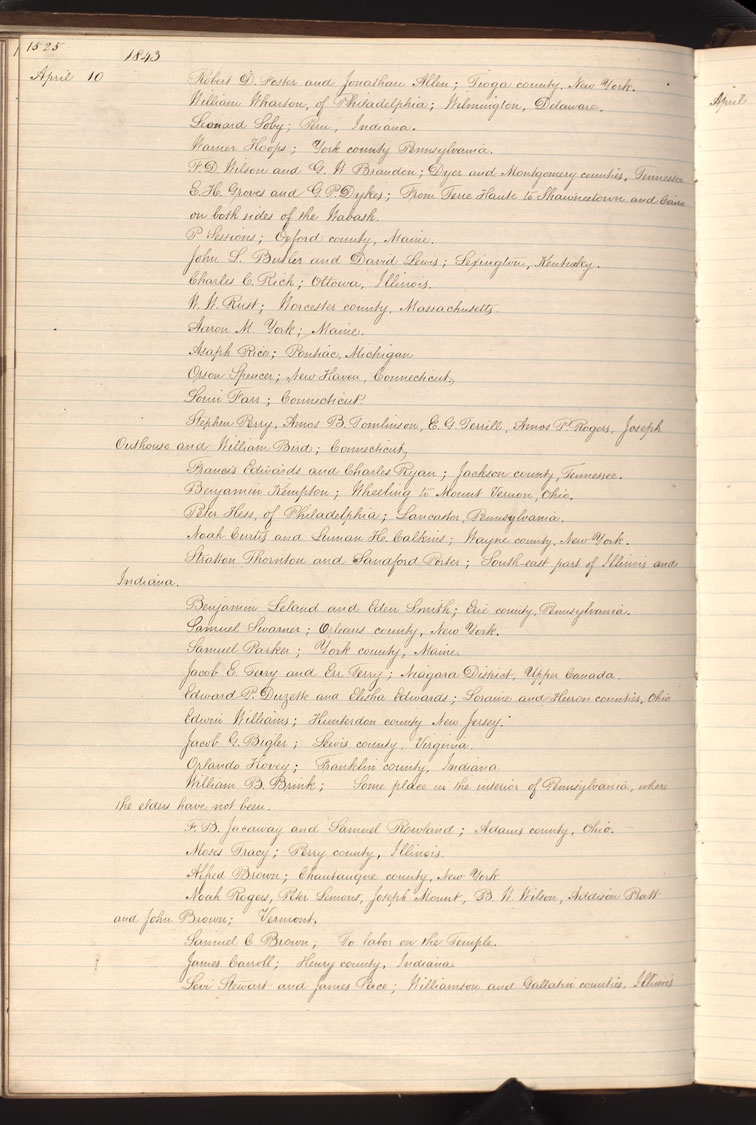 1525
1843
April 10
Robert D. Foster and Jonathan Allen; Tioga county, New York.
William Wharton, of Philadelphia; Wilmington, Delaware.
Leonard Soby; Peru, Indiana.
Warner Hoops; York county Pennsylvania.
F. D. Wilson and G. W Brandon; Dyer and Montgomery counties, Tennessee
E. H. Groves and G. P. Dykes; From Terre Haute to Shawneetown and Cairo
on both sides of the Wabash.
P Sessions; Oxford county, Maine.
John L. Butler and David Lewis; Lexington, Kentucky.
Charles C. Rich; Ottowa, Illinois.
W. W. Rust; Worcester county, Massachusetts.
Aaron M. York; Maine.
Asaph Rice; Pontiac, Michigan
Orson Spencer; New Haven, Connecticut,
Lorin Farr; Connecticut.
Stephen Perry, Amos B. Tomlinson, E. G. Terrill, Amos P. Rogers, Joseph
Outhouse and William Bird; Connecticut,
Francis Edwards and Charles Ryan; Jackson county, Tennessee.
Benjamin Kempton; Wheeling to Mount Vernon, Ohio.
Peter Hess, of Philadelphia; Lancaster, Pennsylvania.
Noah Curtis and Luman H. Calkins; Wayne county, New York.
Stratton Thornton and Sandford Porter; South-east part of Illinois and
Indiana.
Benjamin Leland and Eden Smith; Erie county, Pennsylvania.
Samuel Swarner; Orleans county, New York.
Samuel Parker; York county, Maine.
Jacob E. Terry and Err Terry; Niagara District, Upper Canada.
Edward P. Duzette and Elisha Edwards; Loraine and Huron counties, Ohio
Edwin Williams; Hunterdon county New Jersey.
Jacob G. Bigler; Lewis county, Virginia.
Orlando Hovey; Franklin county, Indiana
William B. Brink; Some place in the interior of Pennsylvania, where
the elders have not been.
F. B. Jacaway and Samuel Rowland; Adams county, Ohio.
Moses Tracy; Perry county, Illinois.
Alfred Brown; Chautauque county, New York
Noah Rogers, Peter Lemons, Joseph Mount, B. W. Wilson, Addison Batt
and John Brown; Vermont,
Samuel C. Brown; To labor on the Temple.
James Carroll; Henry county, Indiana
Levi Stewart and James Pace; Williamson and Gallatin counties, Illinois
April